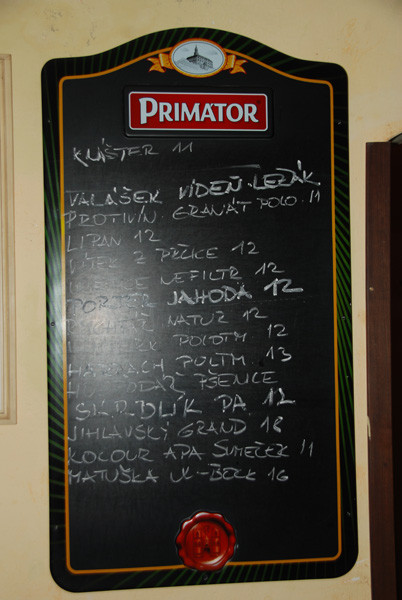 PRIMÁTOR
KLÁŠTER 11
VALÁŠEK VÍDEŇ. LEŽÁK
PROTIVÍN. GRANÁT POLO. 11
LIPAN 12
VÍTEK Z PRČICE 12
NEFILTR 12
PORTER JAHODA 12
NATUR 12
POLOTM 12
POLTM. 13
PŠENICE
SKRDLÍK PA 12
JIHLAVSKÝ GRAND 18
KOCOUR APA SUMEČEK 11
MATUŠKA 16